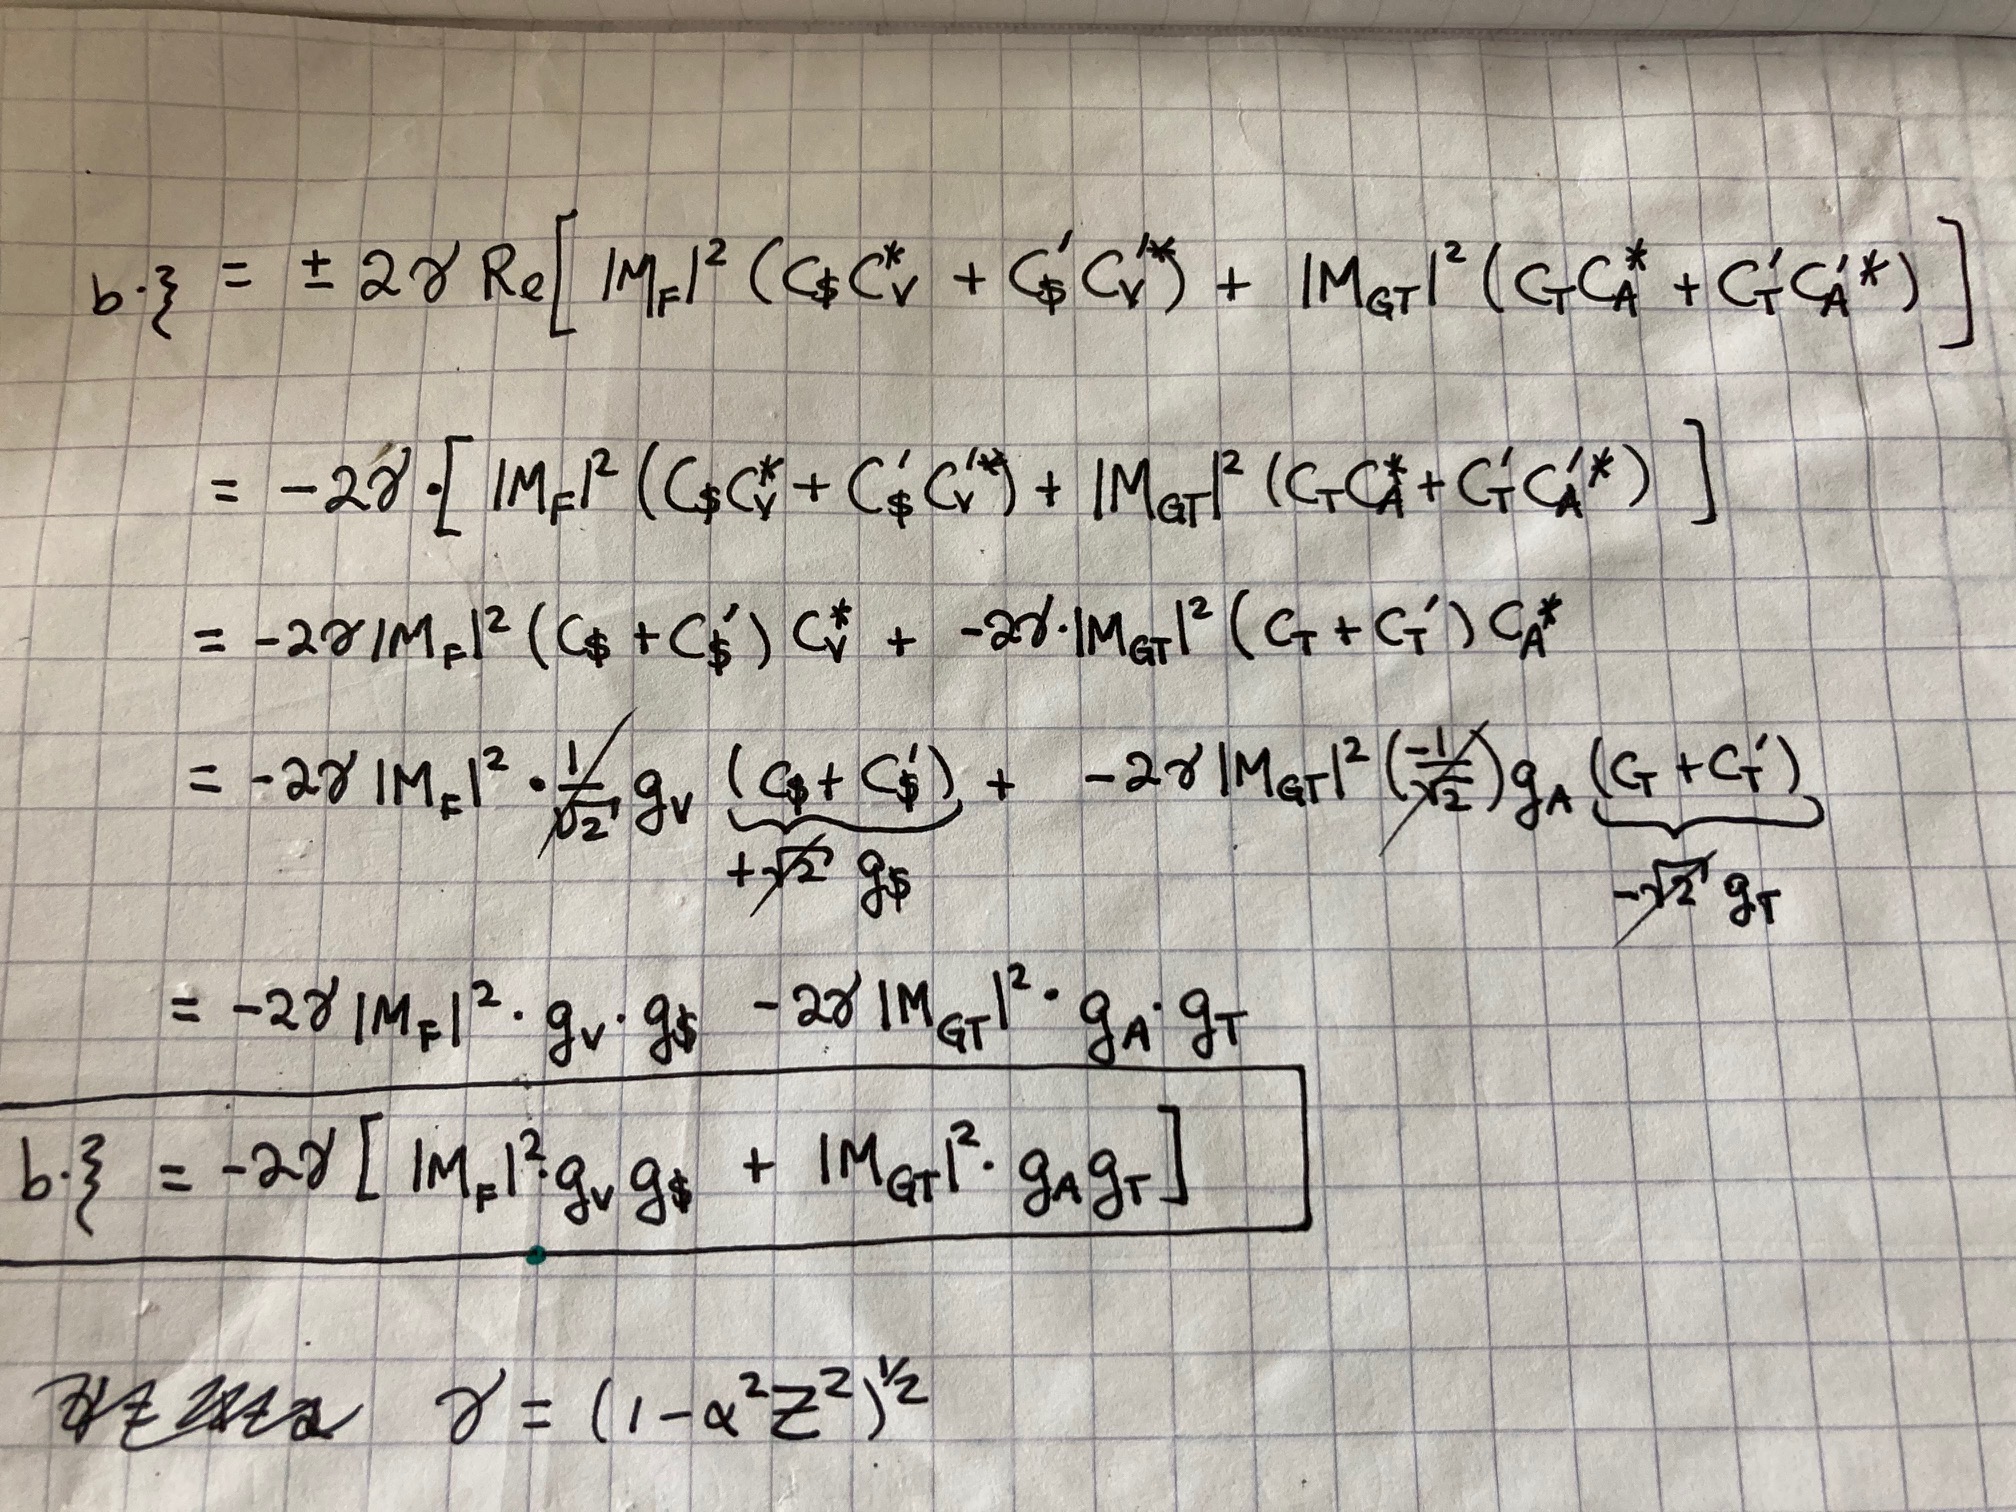 b·ξ = ± 2γ Re[ |M_F|² (C_$ C_V^* + C_$' C_V'^*) + |M_GT|² (C_T C_A^* + C_T' C_A'^*) ]
= -2γ·[ |M_F|² (C_$ C_V^* + C_$' C_V'^*) + |M_GT|² (C_T C_A^* + C_T' C_A'^*) ]
= -2γ |M_F|² (C_$ + C_$') C_V^* + -2γ·|M_GT|² (C_T + C_T') C_A^*
= -2γ |M_F|² · 1/√2 g_V (C_$ + C_$') + -2γ |M_GT|² (-1/√2) g_A (C_T + C_T')
+√2 g_$ -√2 g_T
= -2γ |M_F|² · g_V · g_$ -2γ |M_GT|² · g_A · g_T
b·ξ = -2γ [ |M_F|² · g_V g_$ + |M_GT|² · g_A g_T ]
γ = (1 - α² Z²)^½